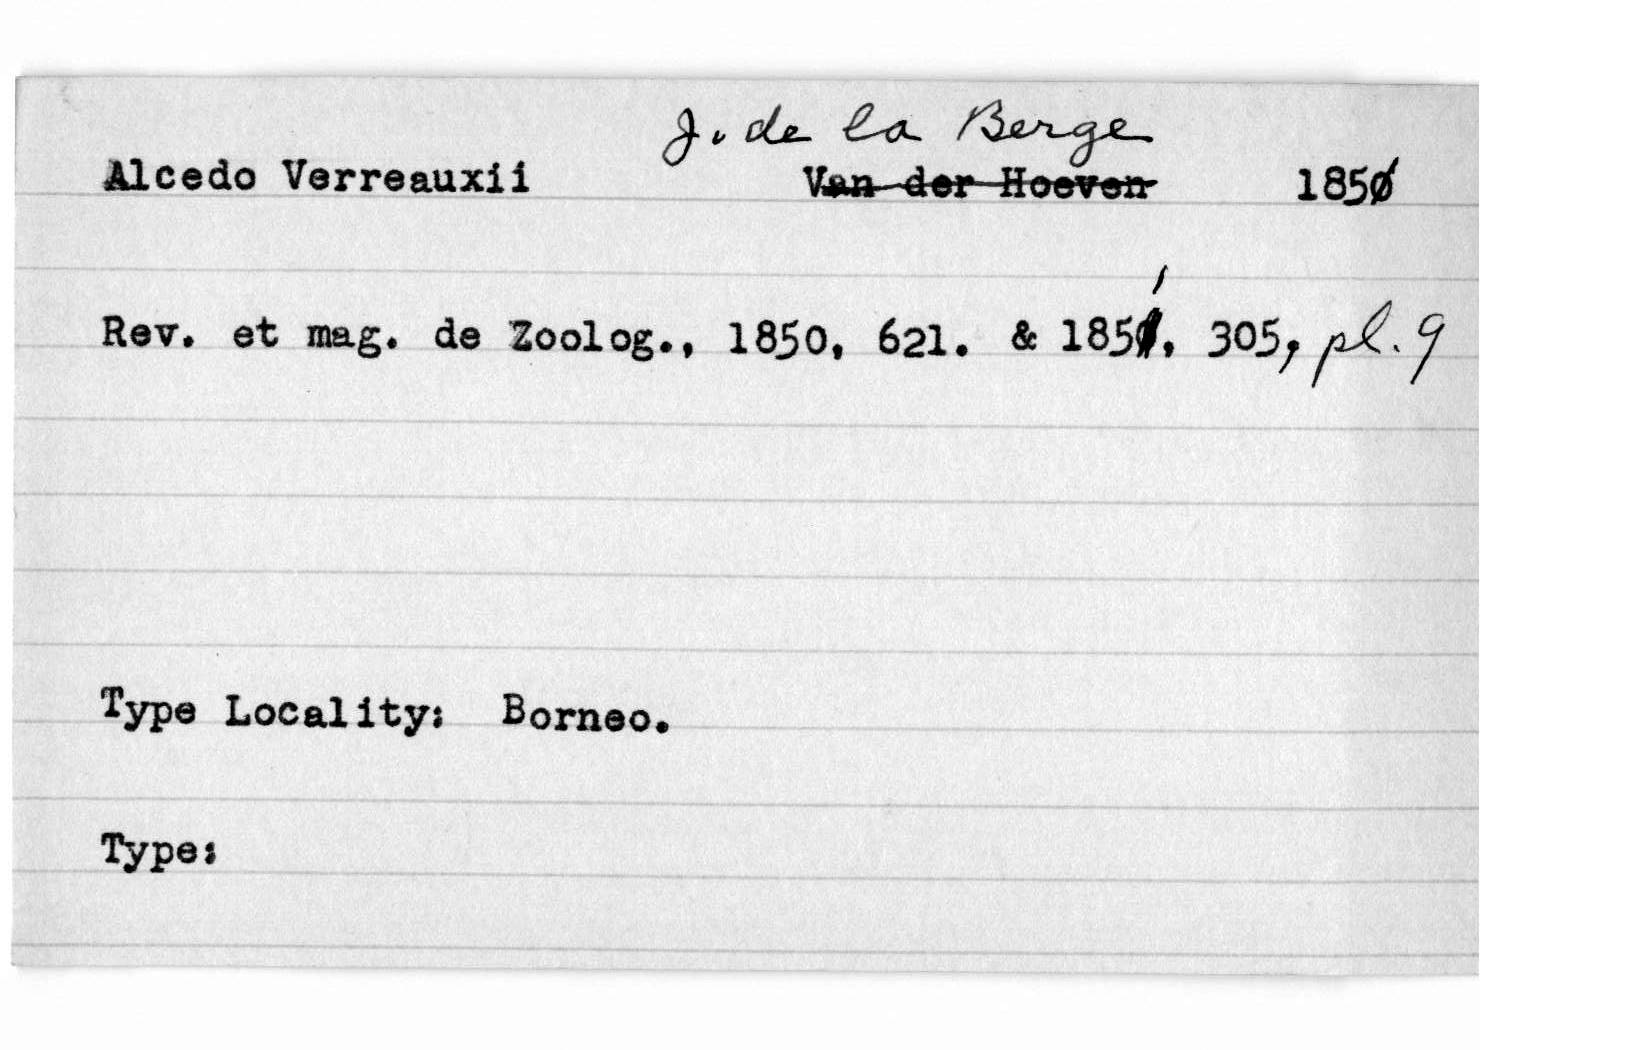 J. de la Berge
Alcedo Verreauxii Van der Hoeven 1851
Rev. et mag. de Zoolog., 1850, 621. & 1851, 305, pl. 9
Type Locality: Borneo.
Type: